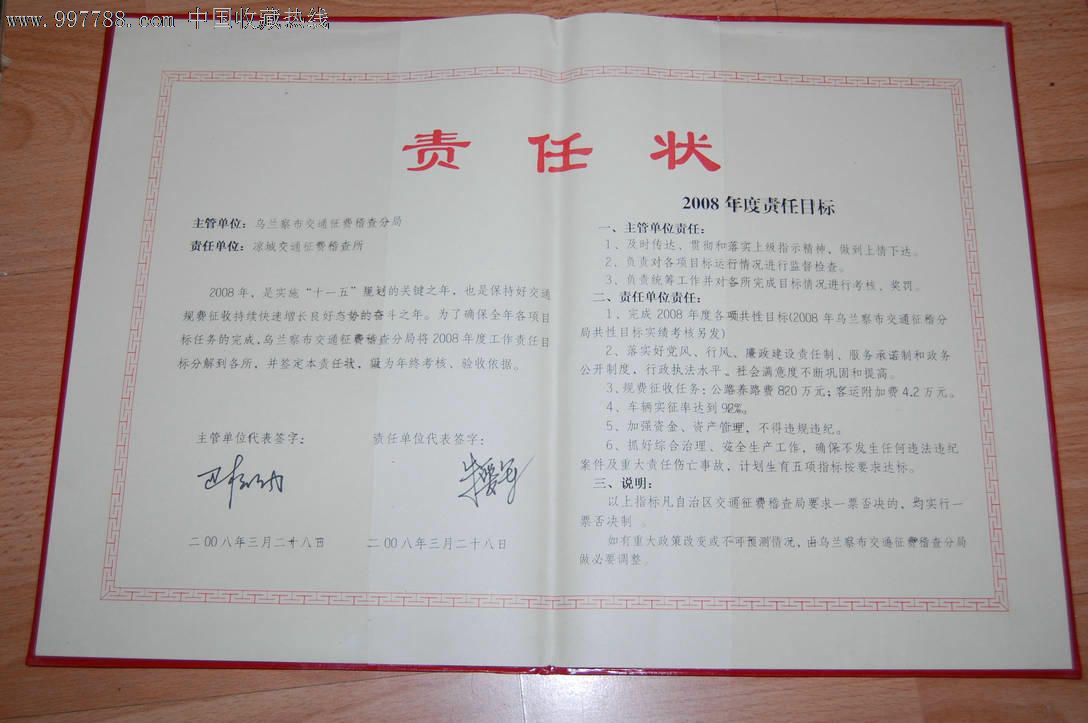 www.997788.com 中国收藏热线
责任状
主管单位：乌兰察布交通征费稽查分局
责任单位：凉城交通征费稽查所
2008年，是实施“十一五”规划的关键之年，也是保持好交通
规费征收持续快速增长良好态势的奋斗之年。为了确保全年各项目
标任务的完成，乌兰察布交通征费稽查分局将2008年度工作责任目
标分解到各所，并签定本责任状，做为年终考核、验收依据。
主管单位代表签字： 责任单位代表签字：
二00八年三月二十八日 二00八年三月二十八日
2008年度责任目标
一、主管单位责任：
1、及时传达、贯彻和落实上级指示精神，做到上情下达。
2、负责对各项目标运行情况进行监督检查。
3、负责统筹工作并对各所完成目标情况进行考核、奖罚。
二、责任单位责任：
1、完成2008年度各项共性目标(2008年乌兰察布交通征稽分
局共性目标实绩考核另发)
2、落实好党风、行风、廉政建设责任制、服务承诺制和政务
公开制度，行政执法水平、社会满意度不断巩固和提高。
3、规费征收任务：公路养路费820万元；客运附加费4.2万元。
4、车辆实征率达到92%。
5、加强资金、资产管理，不得违规违纪。
6、抓好综合治理、安全生产工作，确保不发生任何违法违纪
案件及重大责任伤亡事故，计划生育五项指标按要求达标。
三、说明：
以上指标凡自治区交通征费稽查局要求一票否决的，均实行一
票否决制 。
如有重大政策改变或不可预测情况，由乌兰察布交通征费稽查分局
做必要调整。